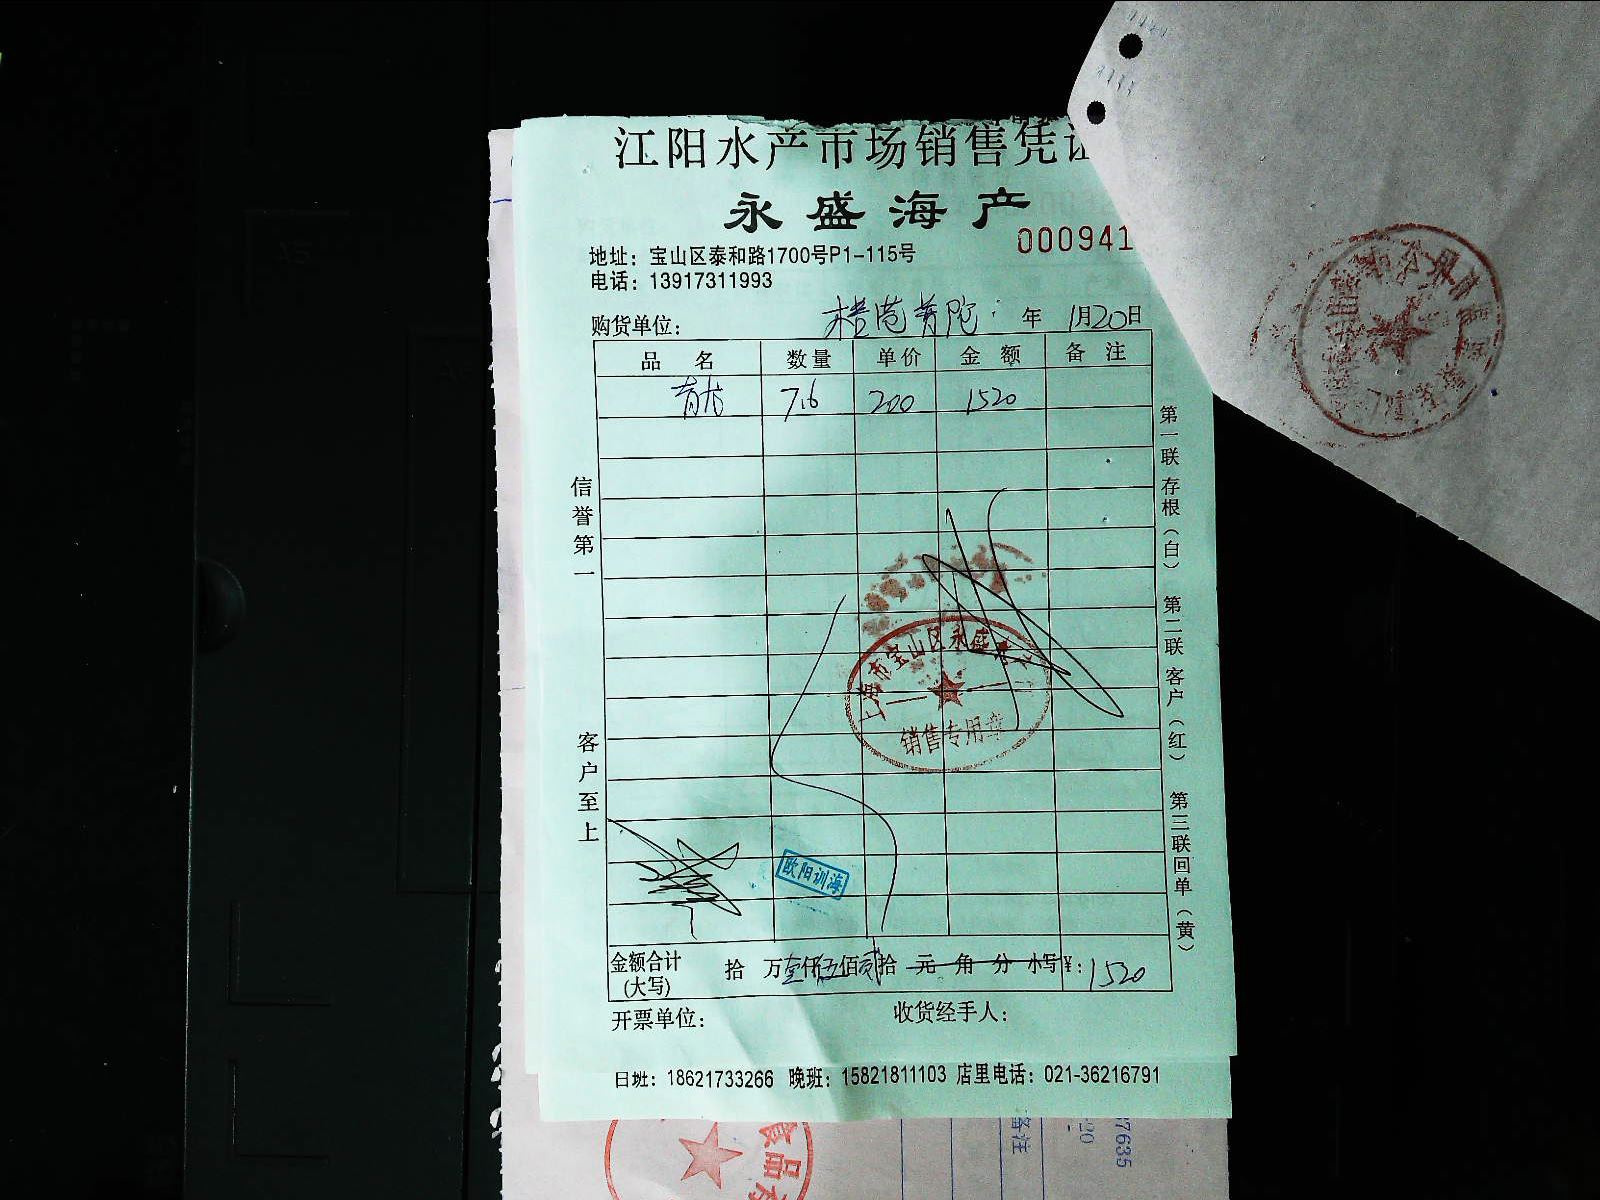 江阳水产市场销售凭证
永盛海产
000941
地址：宝山区泰和路1700号P1-115号
电话：13917311993
购货单位： 年 1月20日
品名 数量 单价 金额 备注
青龙 7.6 200 1520
信誉第一
客户至上
第一联 存根（白） 第二联 客户（红） 第三联 回单（黄）
上海市宝山区永盛
销售专用章
欧阳训海
金额合计（大写） 拾 万壹仟伍佰贰拾 元 角 分 小写¥：1520
开票单位： 收货经手人：
日班：18621733266 晚班：15821811103 店里电话：021-36216791
食品有
备注
37635